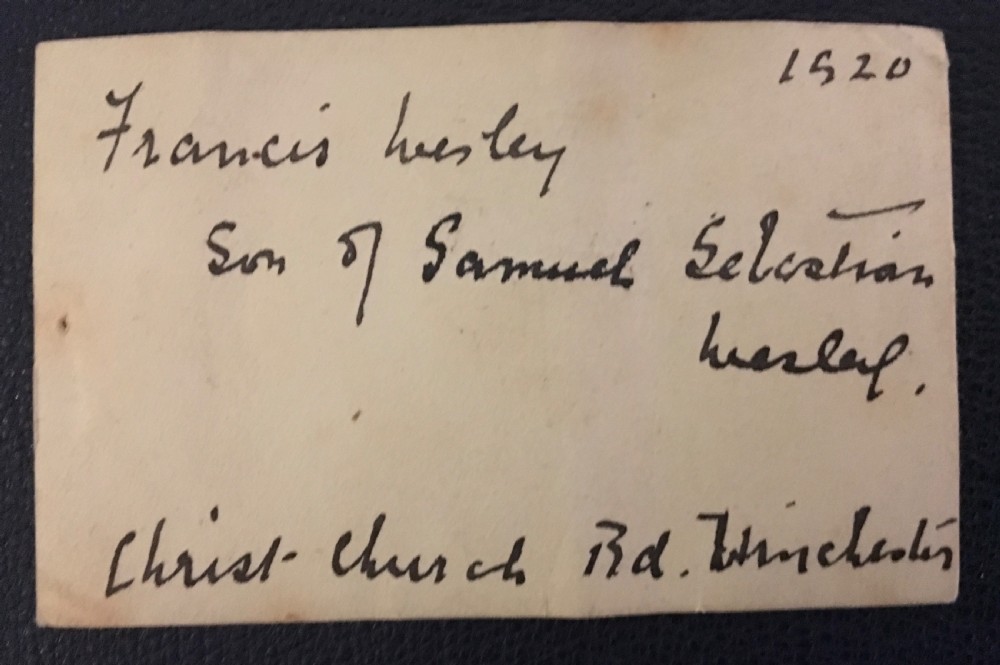 1920
Francis Wesley
Son of Samuel Sebastian
Wesley.
Christ Church Rd. Winchester